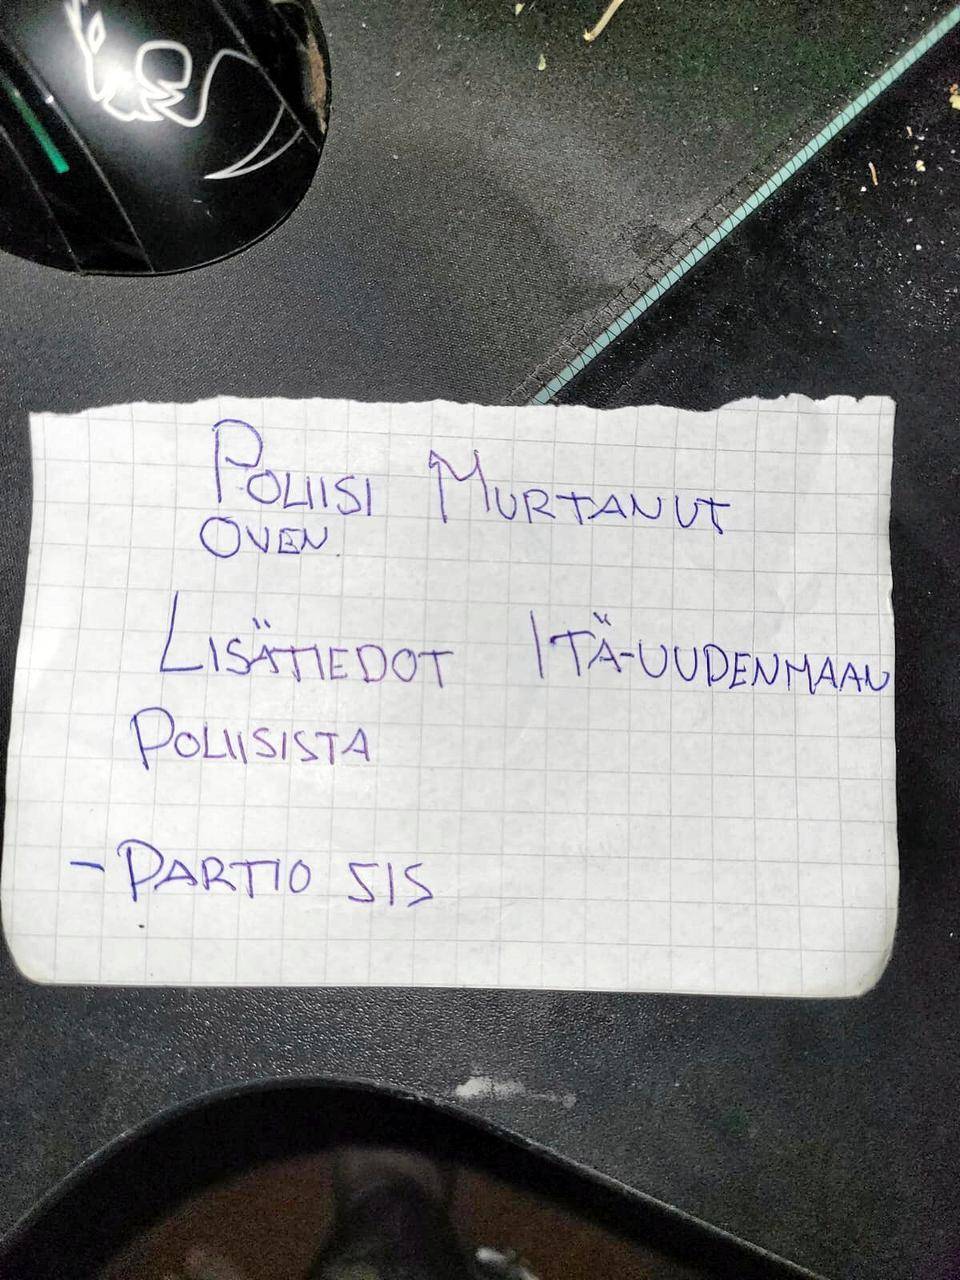 POLIISI MURTANUT
OVEN.
LISÄTIEDOT ITÄ-UUDENMAAN
POLIISISTA
- PARTIO 515